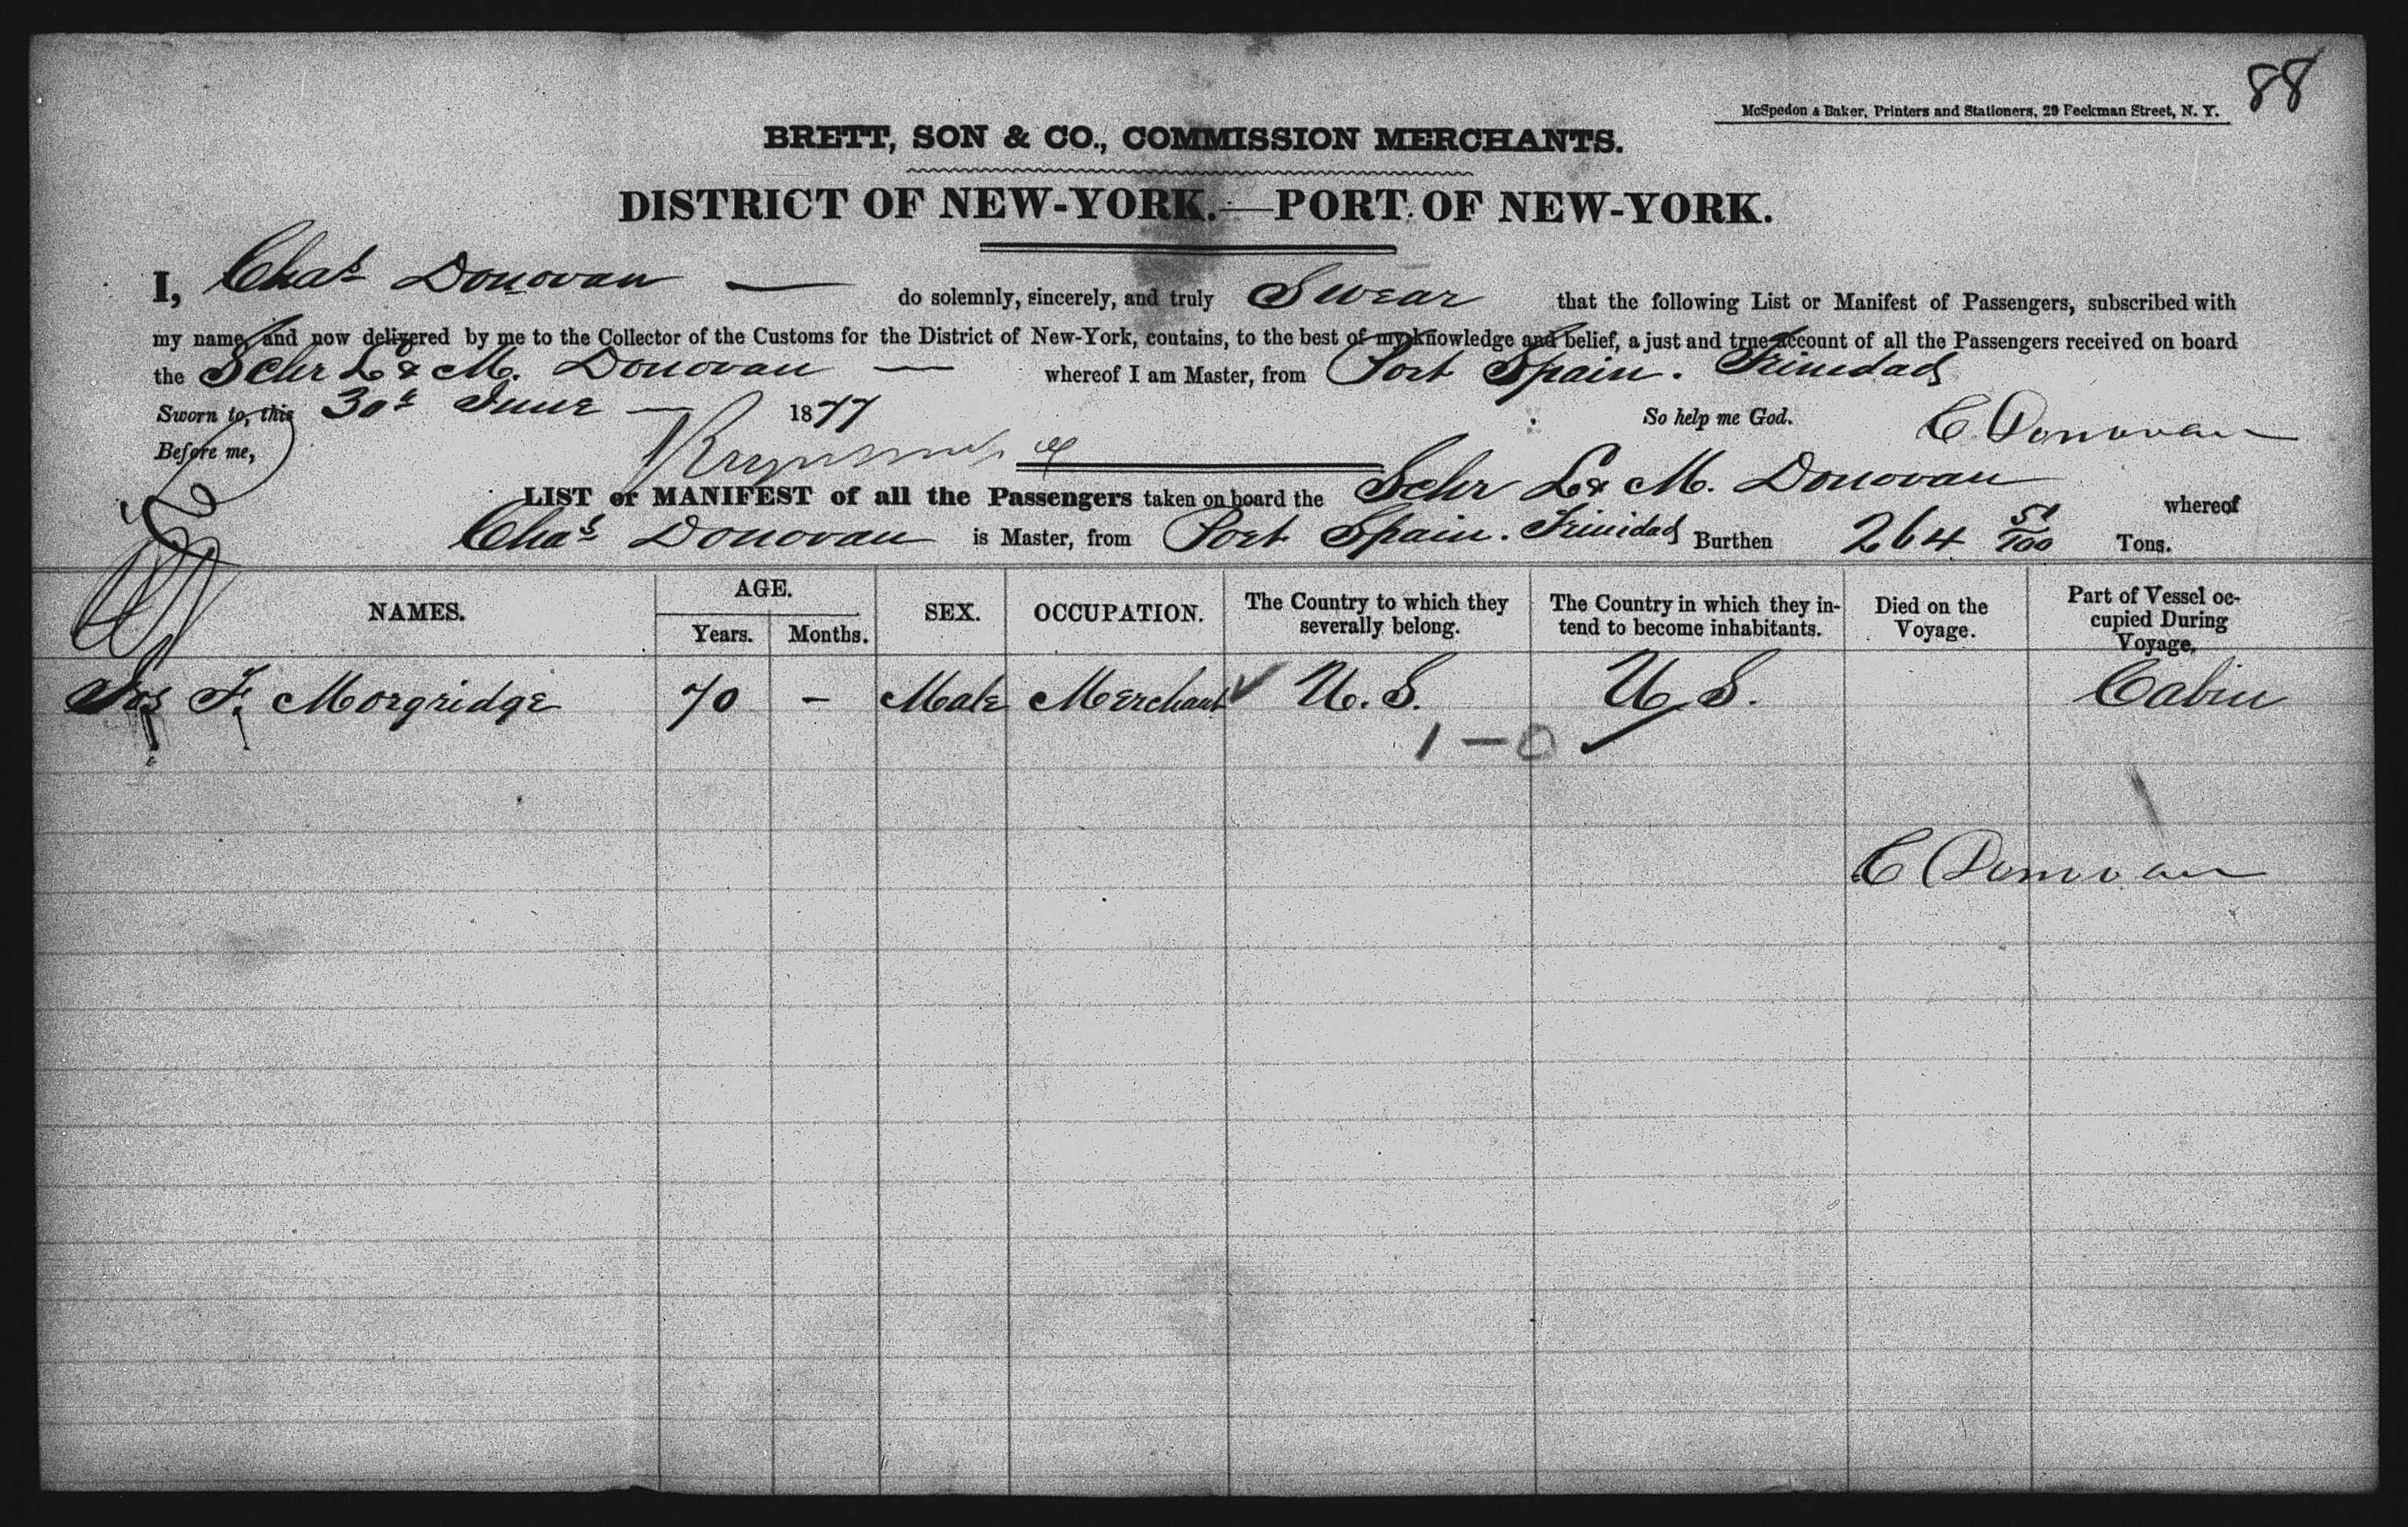 88
McSpedon & Baker, Printers and Stationers, 29 Beekman Street, N. Y.
BRETT, SON & CO., COMMISSION MERCHANTS.
DISTRICT OF NEW-YORK.—PORT OF NEW-YORK.
I, Chas Donovan — do solemnly, sincerely, and truly Swear that the following List or Manifest of Passengers, subscribed with
my name, and now delivered by me to the Collector of the Customs for the District of New-York, contains, to the best of my knowledge and belief, a just and true account of all the Passengers received on board
the Schr L & M. Donovan — whereof I am Master, from Port Spain. Trinidad
Sworn to, this 30th June — 1877 So help me God. C Donovan
Before me,
LIST or MANIFEST of all the Passengers taken on board the Schr L & M. Donovan whereof
Chas Donovan is Master, from Port Spain. Trinidad Burthen 264 51/100 Tons.
NAMES. AGE. Years. Months. SEX. OCCUPATION. The Country to which they severally belong. The Country in which they intend to become inhabitants. Died on the Voyage. Part of Vessel occupied During Voyage.
Jos F. Morgridge 70 - Male Merchant U.S. U.S. Cabin
1 - 0
C Donovan